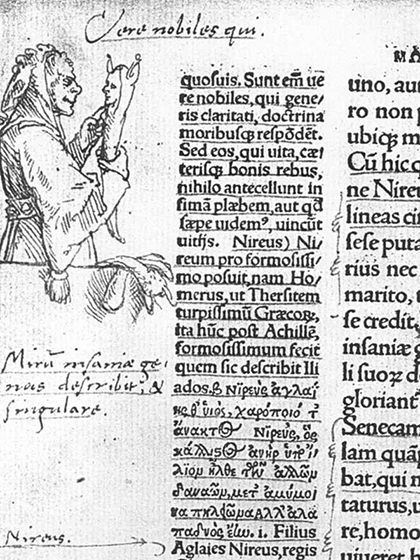 Vere nobiles qui.
quosuis. Sunt em̃ ue
re nobiles, qui gene/
ris claritati, doctrina
moribusq; respõdẽt.
Sed eos, qui uita, cæ/
terisq; bonis rebus,
nihilo antecellunt in
fimã plæbem, aut qđ
sæpe uidemꝰ, uincũt
uitijs. Nireus) Ni/
reum pro formosissi/
mo posuit, nam Ho/
merus, ut Thersitem
turpissimũ Græcoꝝ,
ita hũc post Achillẽ,
formosissimum fecit
quem sic describit Ili
ados.β Νιρεὺς ἀγλαΐ
ης θ' ὑιός, χαρόποιό τ'
ἄνακτος Νιρεὺς, ὃς
κάλλιςος ἀνὴρ ὑπ' ἴ/
λιον ἦλθε τῶν ἄλλων
δαναῶν, μετ' ἀμύμο
παδνὸς ἔων. i. Filius
Aglaies Nireus, regis
Mirũ insaniæ ge-
nus describit, &
singulare.
Nireus.
MA
uno, aut
ro non p
ubiq; m
Cũ hic q
ne Nireu
lineas cir
sese puta
rius nec
marito, s
se credit,
insaniæ g
li suoꝝ d
gloriant
Senecam
lam quãp
bat, qui n
taturus, u
re, homo
uiueret, h